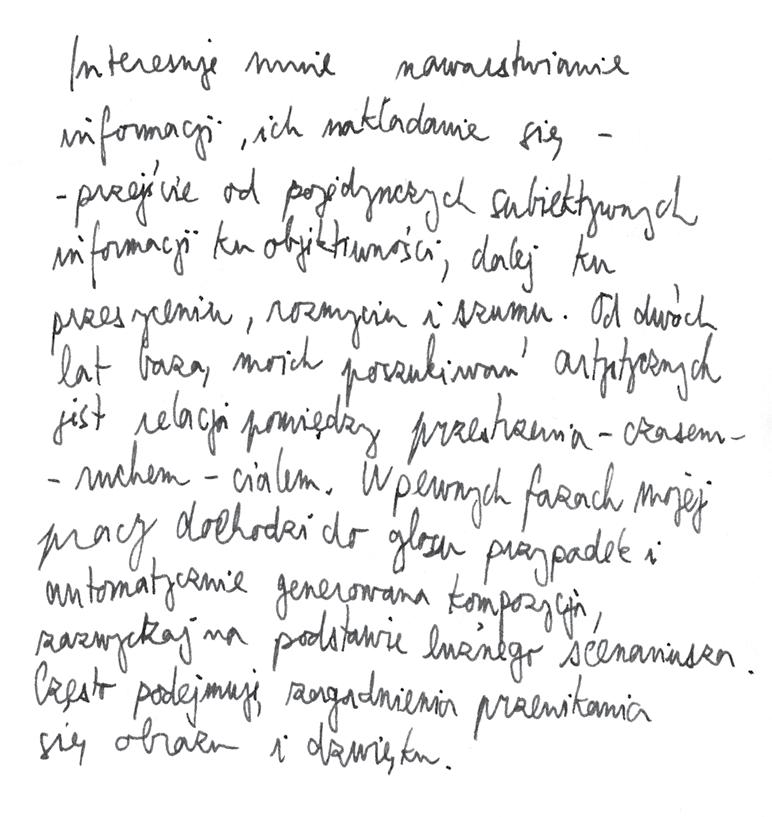 Interesuje mnie nawarstwianie
informacji, ich nakładanie się -
- przejście od pojedynczych subiektywnych
informacji ku objektiwności, dalej ku
przesyceniu, rozmyciu i szumu. Od dwóch
lat bazą moich poszukiwań artystycznych
jest relacja pomiędzy przestrzenią - czasem -
- ruchem - ciałem. W pewnych fazach mojej
pracy dochodzi do głosu przypadek i
automatycznie generowana kompozycja,
zazwyczaj na podstawie luźnego scenariusza.
Często podejmuję zagadnienia przenikania
się obrazu i dźwięku.